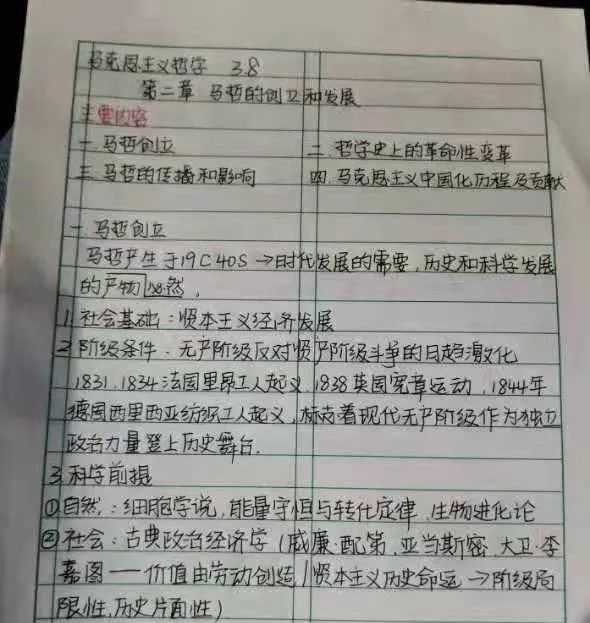 马克思主义哲学 3.8
第二章 马哲的创立和发展
主要内容
一.马哲创立 二.哲学史上的革命性变革
三.马哲的传播和影响 四.马克思主义中国化历程及贡献
一.马哲创立
马哲产生于19C 40S→时代发展的需要,历史和科学发展
的产物 必然.
1.社会基础:资本主义经济发展
2.阶级条件.无产阶级反对资产阶级斗争的日趋激化
1831.1834法国里昂工人起义,1838英国宪章运动,1844年
德国西里西亚纺织工人起义,标志着现代无产阶级作为独立
政治力量登上历史舞台.
3.科学前提
①自然:细胞学说,能量守恒与转化定律,生物进化论
②社会:古典政治经济学(威廉·配第,亚当斯密,大卫·李
嘉图——价值由劳动创造/资本主义历史命运→阶级局
限性,历史片面性)